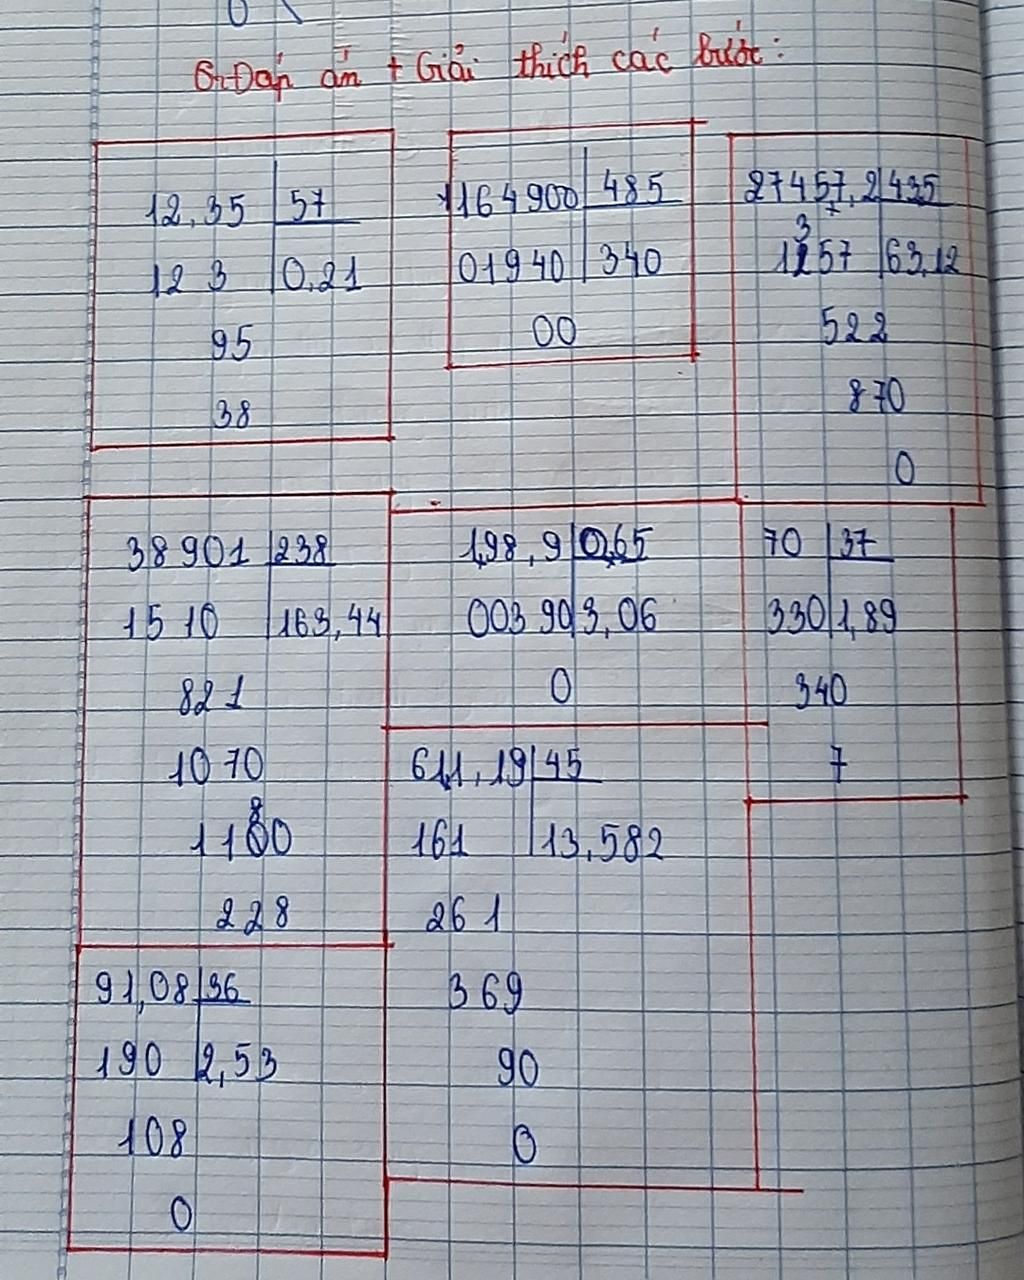 Đáp án + Giải thích các bước:
12,35 57
12 3 0,21
95
38
164900 485
01940 340
00
27457,2 435
1357 63,12
522
870
0
38901 238
1510 163,44
821
1070
1180
228
198,9 0,65
00390 3,06
0
70 37
330 1,89
340
7
611,19 45
161 13,582
261
369
90
0
91,08 36
190 2,53
108
0